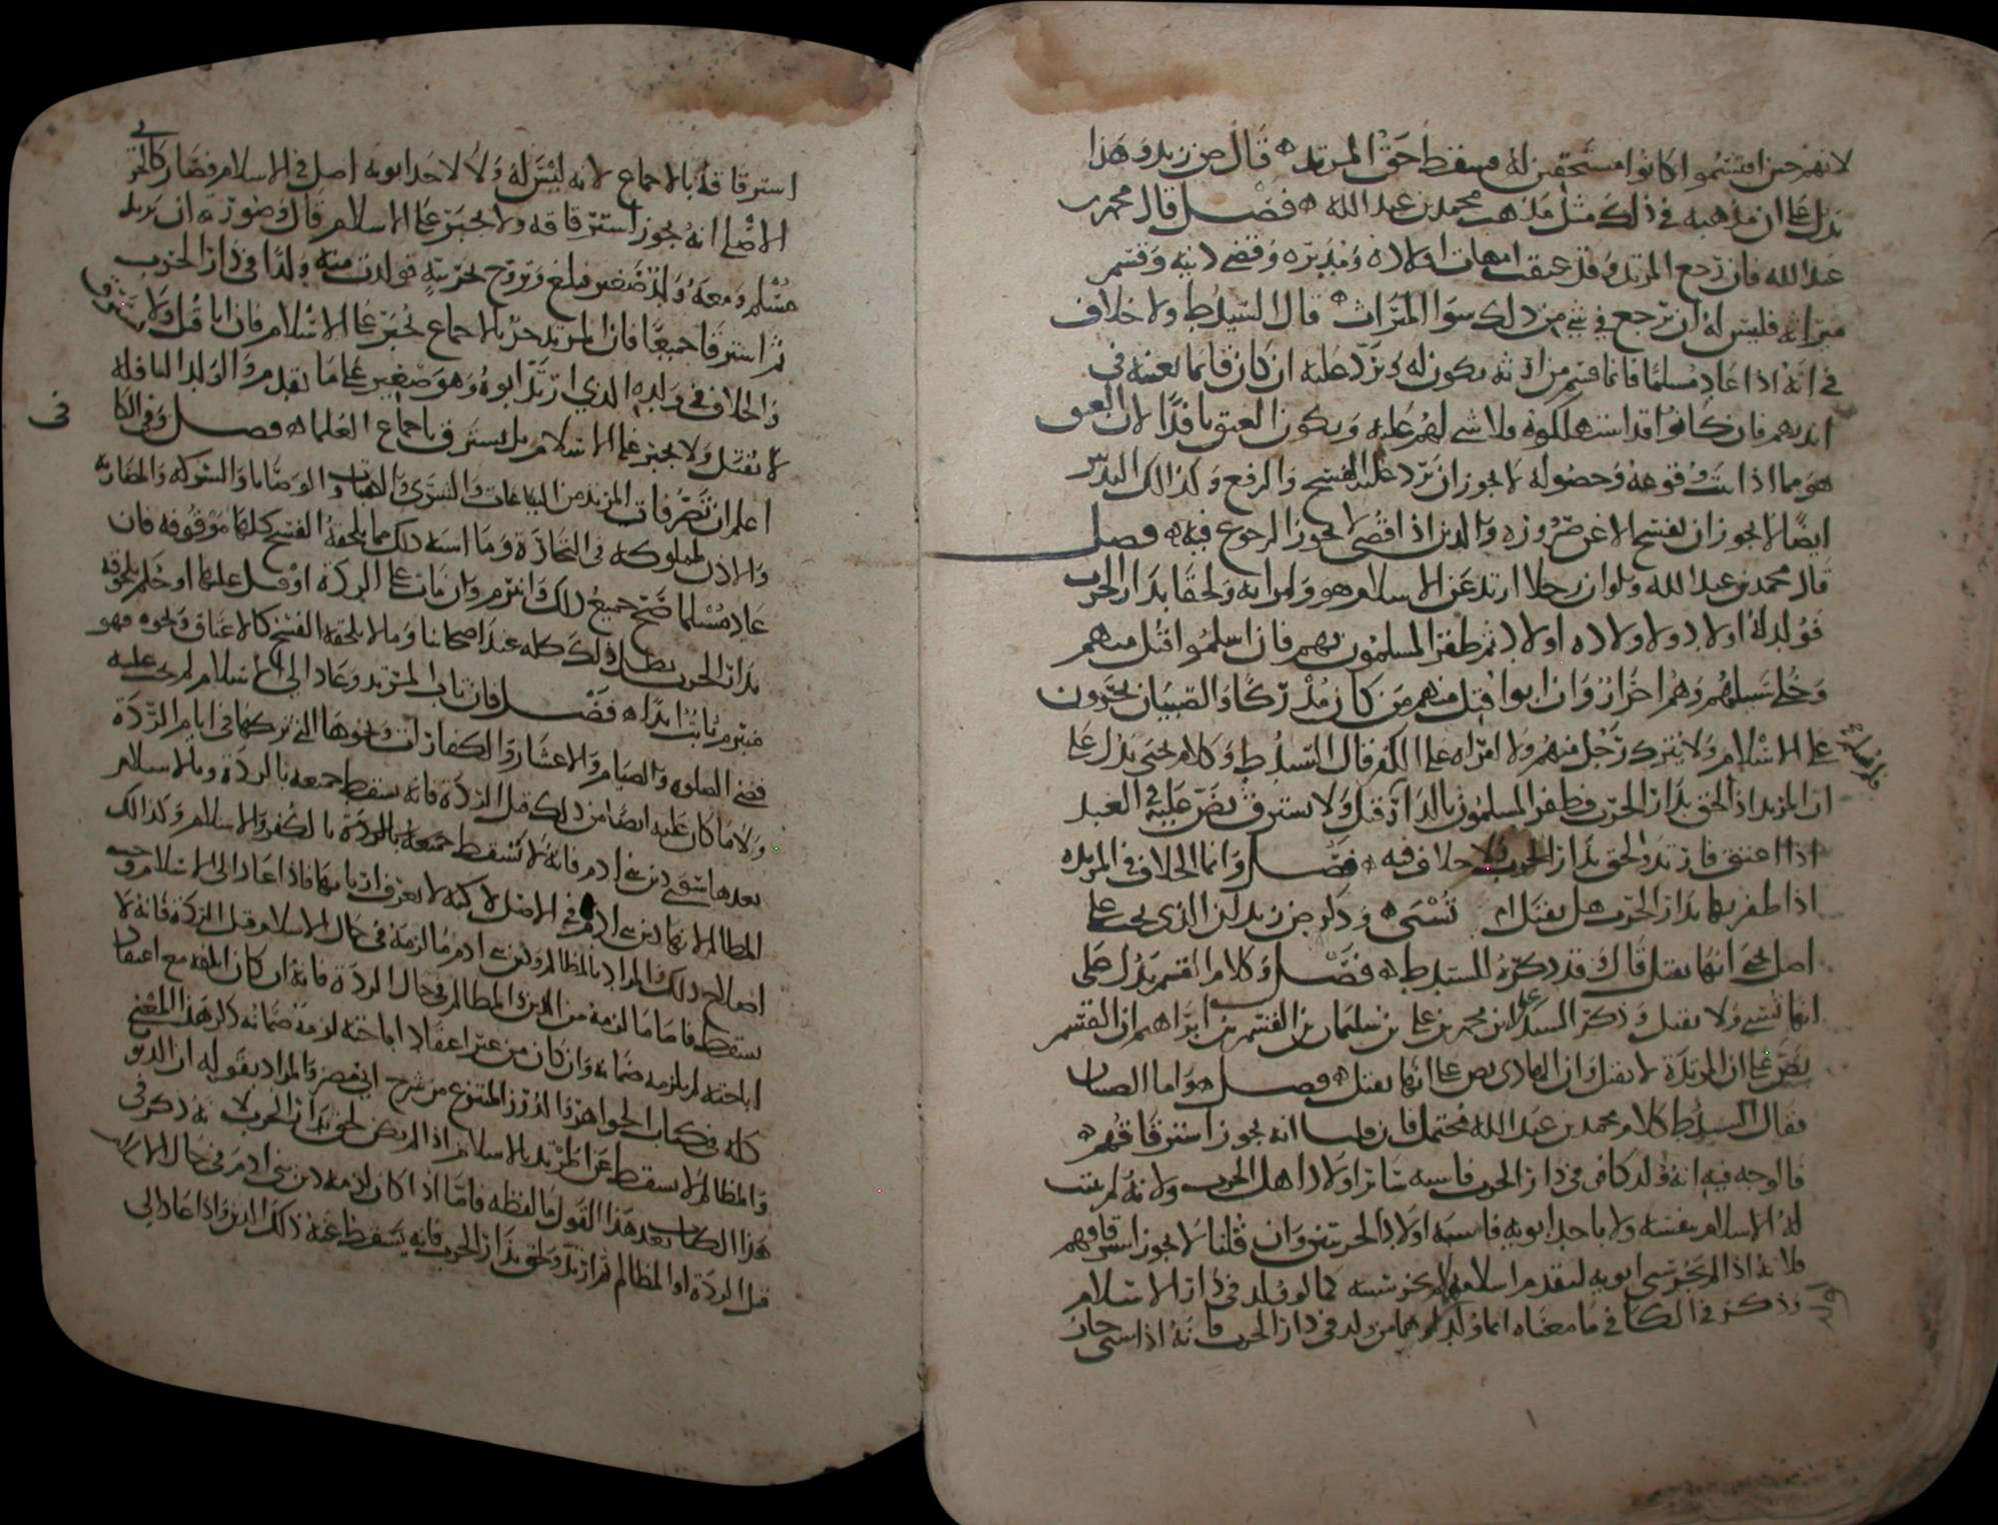 لانهم حين اقتسموا كانوا مستحقين له فسقط حق المرتد ه قال ض زيد وهذا
يدل على ان مذهبه في ذلك مثل مذهب محمد بن عبدالله ه فصل قال محمد بن
عبدالله فان رجع المرتد وقد عتقت امهات اولاده ومدبره وقضي دينه وقسم
ميراثه فليس له ان يرجع في شي من ذلك سوا الميراث ه قال السيد ط ولا خلاف
في انه اذا عاد مسلما فانما قسم من ارثه يكون له ويرد عليه ان كان قائما بعينه في
ايديهم فان كانوا قد استهلكوه فلا شي لهم عليه ويكون العتق نافذا لان العتق
هو مما اذا ثبت وقوعه وحصوله لا يجوز ان يرد عليه الفسخ والرفع وكذلك التدبير
ايضا لا يجوز ان يفسخ الا عن ضروره والدين اذا اقضي لا يجوز الرجوع فيه ه فصل
قال محمد بن عبد الله ولو ان رجلا ارتد عن الاسلام هو وامراته ولحقا بدار الحرب
فولد له اولاد ولاولاده اولاد ثم ظفر المسلمون بهم فان اسلموا اقبل منهم
وخلي سبيلهم وهم احرار وان ابوا قتل منهم من كان مدركا والصبيان يجبرون
على الاسلام ولا يترك رجل منهم ولا امراه على الكفر قال السيد ط وكلام يحيى يدل على
ان المرتد اذا لحق بدار الحرب فظفر المسلمون بالدار قتل ولا يسترق نص عليه في العبد
اذا اعتق فارتد ولحق بدار الحرب ولا خلاف فيه ه فصل وانما الخلاف في المرتده
اذا ظفر بها بدار الحرب هل يقتل ام تسبى ه وذكر ض زيد ان الذي يجي على
اصل يحيى انها تقتل قال وقد ذكره السيد ط ه فصل وكلام القسم يدل على
انها تسبى ولا تقتل وذكر السيد علي ابن محمد بن علي بن سليمان بن القسم بن ابراهيم ان القسم
نص على ان المرتدة لا تقتل وان الهادي نص على انها تقتل ه فصل ه واما الصبيان
فقال السيد ط كلام محمد بن عبد الله محتمل فان قلنا انه يجوز استرقاقهم ه
فالوجه فيه انه ولد كافر في دار الحرب فاشبه سائر اولاد اهل الحرب ولانه لم يثبت
له الاسلام بنفسه ولا باحد ابويه فاشبه اولاد الحربيين وان قلنا لا يجوز استرقاقهم
فلانه اذا لم يجز سبي ابويه لتقدم اسلامهما لم يجز سبيه كما لو ولد في دار الاسلام
وذكر في الكافي ما معناه انما ولد لهما من ولد في دار الحرب فانه اذا سبي جاز
استرقاقه بالاجماع لانه ليس له ولا لاحد ابويه اصل في الاسلام فصار كالحربي
الاصلي انه يجوز استرقاقه ولا يجبر على الاسلام قال وصورته ان يرتد
مسلم ومعه ولد صغير فبلغ وتزوج بحربية فولدت منه ولدا في دار الحرب
ثم استرقا جميعا فان المرتد حر بالاجماع يجبر على الاسلام فان ابا قتل ولا يسترق
والخلاف في ولده الذي ارتد ابوه وهو صغير على ما تقدم والولد النافلة
لا يقتل ولا يجبر على الاسلام بل يسترق باجماع العلما ه فصل وفي الكا
في
اعلم ان تصرفات المرتد من البياعات والشرى والهبات والوصايا والشركه والمضاربة
والاذن لمملوكه في التجارة وما اشبه ذلك مما يلحقه الفسخ كلها موقوفه فان
عاد مسلما صح جميع ذلك وانبرم وان مات على الردة او قتل عليها او حكم بلحوقه
بدار الحرب بطل ذلك كله عند اصحابنا وما لا يلحقه الفسخ كالاعتاق ونحوه فهو
منبرم ثابت ابدا ه فصل فان تاب المرتد وعاد الى الاسلام لم يجب عليه
قضى الصلوه والصيام والاعشار والكفارات ونحوها التي تركها في ايام الردة
ولا ما كان عليه ايضا من ذلك قبل الردة فانه يسقط جميعه بالردة وبالاسلام
بعدها سوى دين بني ادم فانه لا يسقط جميعه بالردة بالكفر والاسلام وكذلك
المظالم لانها دين بني ادم في الاصل لاكنه لا يعرف اربابها فاذا عاد الى الاسلام وجب
اصلاح ذلك والمراد بالمظالم ودين بني ادم ما لزمه في حال الاسلام قبل الردة فانه لا
يسقط فاما ما لزمه من الدين والمظالم في حال الردة فانه ان كان اتلفه مع اعتقاد
اباحته لم يلزمه ضمانه وان كان من غير اعتقاد اباحته لزمه ضمانه ذكر هذا المعنى
كله في كتاب الجواهر والدرر المنتزع من شرح ابي مضر والمراد بقوله ان الديون
والمظالم لا يسقط عن المرتد بالاسلام اذا لم يكن لحق بدار الحرب لانه ذكر في
هذا الكتاب بعد هذا القول ما لفظه فاما اذا كان لزمه دين بني ادم في حال الاسلام
قبل الردة او المظالم ثم ارتد ولحق بدار الحرب فانه يسقط عنه ذلك الدين واذا عاد الى